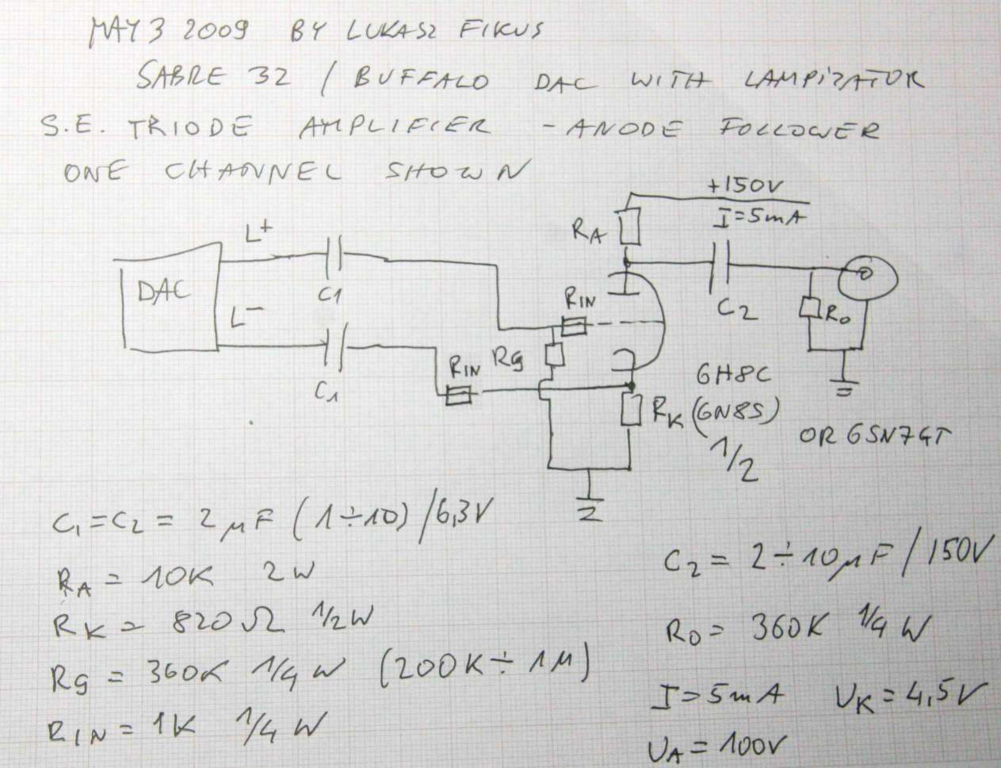 MAY 3 2009 BY LUKASZ FIKUS
SABRE 32 / BUFFALO DAC WITH LAMPIZATOR
S.E. TRIODE AMPLIFIER - ANODE FOLLOWER
ONE CHANNEL SHOWN
+150V
I=5mA
RA
L+
DAC
C1
C2
RIN
RO
L-
C1
RIN
Rg
6H8C
RK
(6N8S)
1/2
OR 6SN7GT
C1=C2 = 2μF (1÷10)/6,3V
RA = 10K 2W
RK = 820Ω 1/2W
Rg = 360K 1/4 W (200K÷1M)
RIN = 1K 1/4 W
C2 = 2÷10μF / 150V
RO = 360K 1/4 W
I=5mA UK = 4,5V
UA = 100V